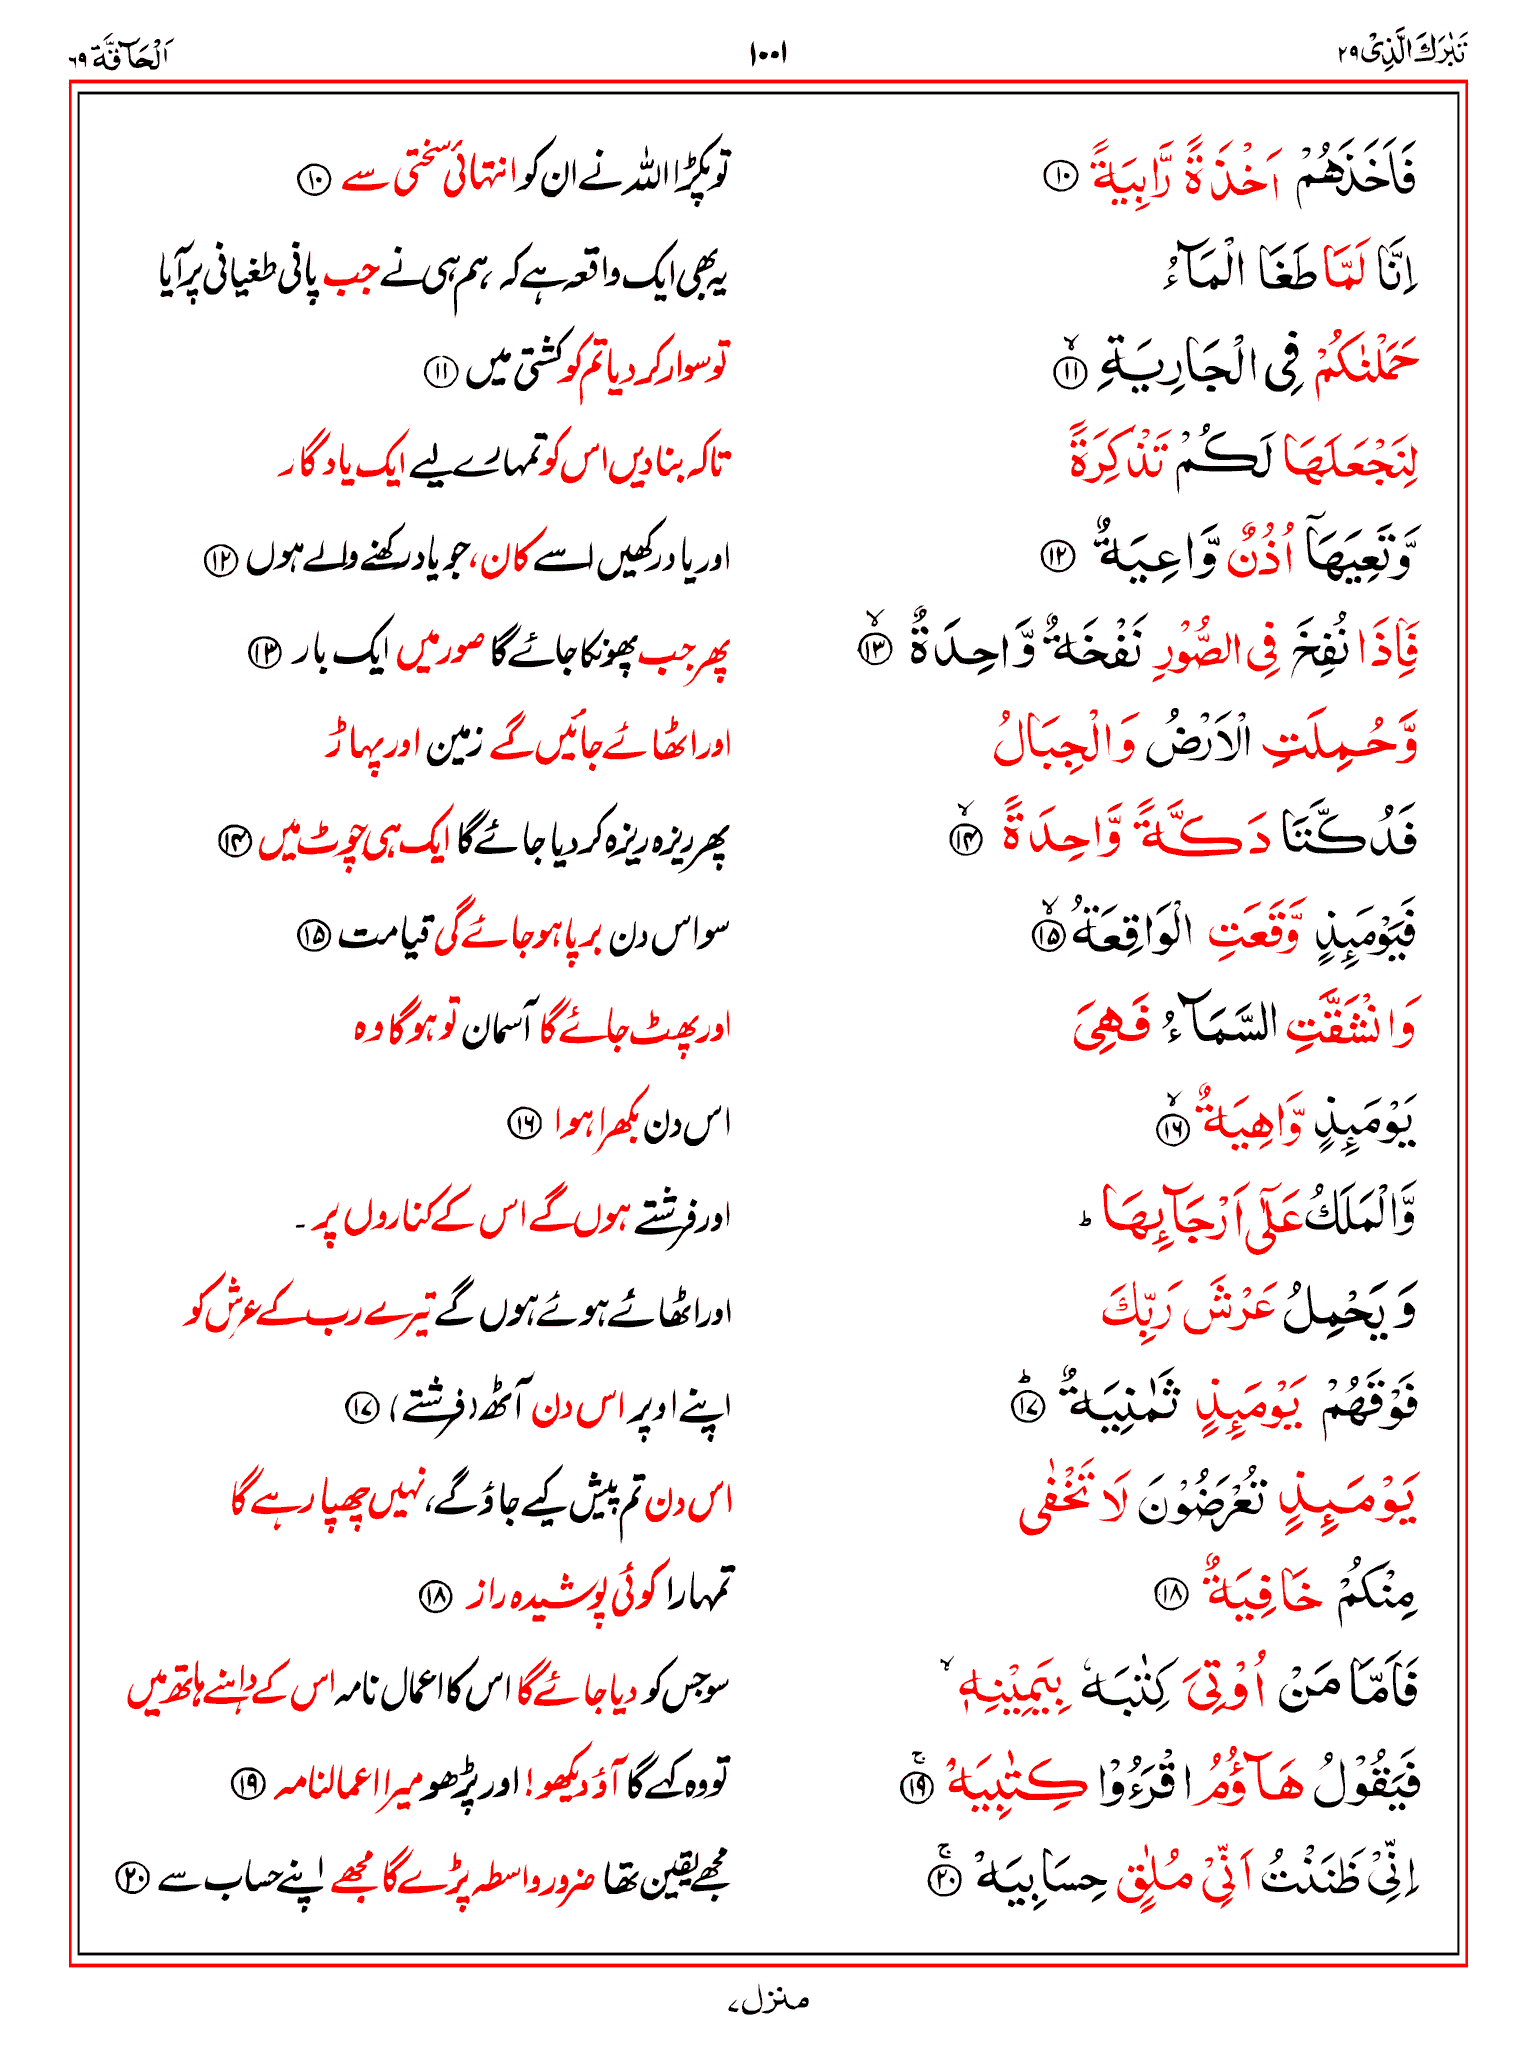 تَبٰرَكَ الَّذِیْ ۲۹ ۱۰۰۱ اَلْحَآقَّة ۶۹
فَاَخَذَهُمْ اَخْذَةً رَّابِيَةً ۝۱۰ تو پکڑا اللہ نے ان کو انتہائی سختی سے ۝۱۰
اِنَّا لَمَّا طَغَا الْمَآءُ یہ بھی ایک واقعہ ہے کہ ہم ہی نے جب پانی طغیانی پر آیا
حَمَلْنٰكُمْ فِی الْجَارِيَةِ ۝۱۱ۙ تو سوار کر دیا تم کو کشتی میں ۝۱۱
لِنَجْعَلَهَا لَكُمْ تَذْكِرَةً تاکہ بنا دیں اس کو تمہارے لیے ایک یادگار
وَّتَعِيَهَاۤ اُذُنٌ وَّاعِيَةٌ ۝۱۲ اور یاد رکھیں اسے کان، جو یاد رکھنے والے ہوں ۝۱۲
فَاِذَا نُفِخَ فِی الصُّوْرِ نَفْخَةٌ وَّاحِدَةٌ ۝۱۳ۙ پھر جب پھونکا جائے گا صور میں ایک بار ۝۱۳
وَّحُمِلَتِ الْاَرْضُ وَالْجِبَالُ اور اٹھائے جائیں گے زمین اور پہاڑ
فَدُكَّتَا دَكَّةً وَّاحِدَةً ۝۱۴ۙ پھر ریزہ ریزہ کر دیا جائے گا ایک ہی چوٹ میں ۝۱۴
فَيَوْمَىِٕذٍ وَّقَعَتِ الْوَاقِعَةُ ۝۱۵ۙ سو اس دن برپا ہو جائے گی قیامت ۝۱۵
وَانْشَقَّتِ السَّمَآءُ فَهِیَ اور پھٹ جائے گا آسمان تو ہو گا وہ
يَوْمَىِٕذٍ وَّاهِيَةٌ ۝۱۶ۙ اس دن بکھرا ہوا ۝۱۶
وَّالْمَلَكُ عَلٰۤی اَرْجَآىِٕهَا ؕ اور فرشتے ہوں گے اس کے کناروں پر۔
وَ يَحْمِلُ عَرْشَ رَبِّكَ اور اٹھائے ہوئے ہوں گے تیرے رب کے عرش کو
فَوْقَهُمْ يَوْمَىِٕذٍ ثَمٰنِيَةٌ ۝۱۷ؕ اپنے اوپر اس دن آٹھ (فرشتے) ۝۱۷
يَوْمَىِٕذٍ تُعْرَضُوْنَ لَا تَخْفٰی اس دن تم پیش کیے جاؤ گے، نہیں چھپا رہے گا
مِنْكُمْ خَافِيَةٌ ۝۱۸ تمہارا کوئی پوشیدہ راز ۝۱۸
فَاَمَّا مَنْ اُوْتِیَ كِتٰبَهٗ بِيَمِيْنِهٖ ۙ سو جس کو دیا جائے گا اس کا اعمال نامہ اس کے داہنے ہاتھ میں
فَيَقُوْلُ هَآؤُمُ اقْرَءُوْا كِتٰبِيَهْ ۝۱۹ۚ تو وہ کہے گا آؤ دیکھو! اور پڑھو میرا اعمالنامہ ۝۱۹
اِنِّیْ ظَنَنْتُ اَنِّیْ مُلٰقٍ حِسَابِيَهْ ۝۲۰ۚ مجھے یقین تھا ضرور واسطہ پڑے گا مجھے اپنے حساب سے ۝۲۰
منزل ۷